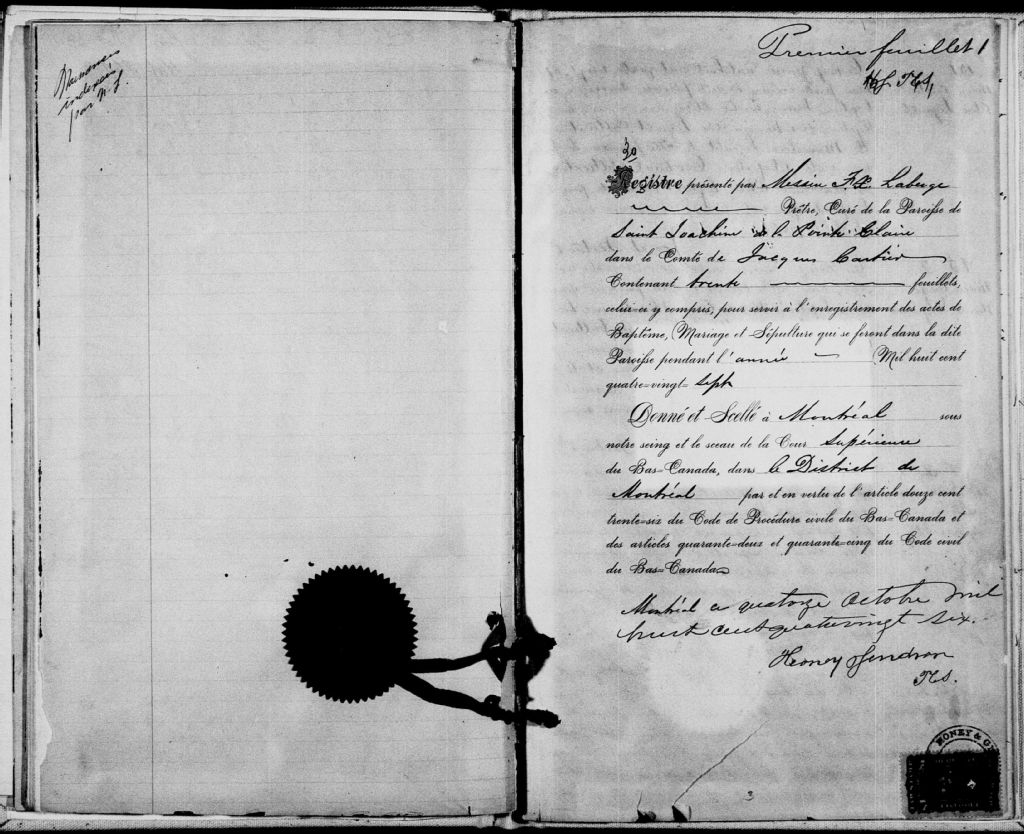 indexés
par N. L.
Premier feuillet 1
30
Registre présenté par Messire F.X. Laberge
Prêtre, Curé de la Paroisse de
Saint Joachim de la Pointe Claire
dans le Comté de Jacques Cartier
Contenant trente feuillets,
celui-ci y compris, pour servir à l'enregistrement des actes de
Baptême, Mariage et Sépulture qui se feront dans la dite
Paroisse pendant l'année Mil huit cent
quatre=vingt= sept
Donné et Scellé à Montréal sous
notre seing et le sceau de la Cour Supérieure
du Bas=Canada, dans le District de
Montréal par et en vertu de l'article douze cent
trente=six du Code de Procédure civile du Bas=Canada et
des articles quarante=deux et quarante=cinq du Code civil
du Bas=Canada
Montréal ce quatorze octobre mil
huit cent quatrevingt six.
Honey Gendron
HONEY & G
3